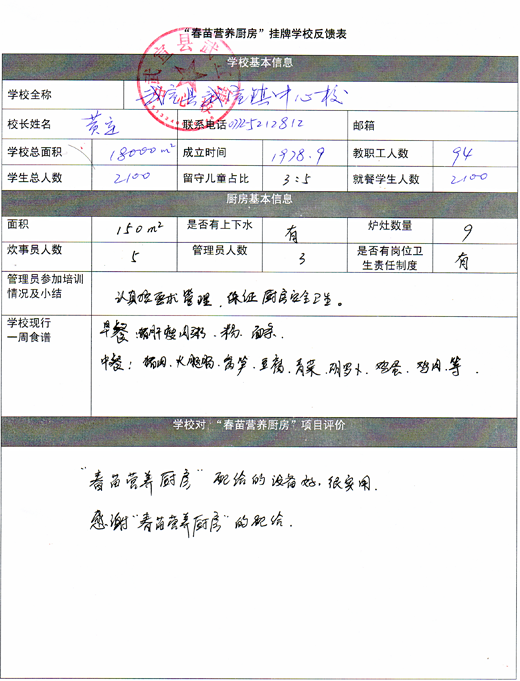 “春苗营养厨房”挂牌学校反馈表
学校基本信息
学校全称 武宣县武宣镇中心校
校长姓名 黄 联系电话 07725212812 邮箱
学校总面积 18000m² 成立时间 1978.9 教职工人数 94
学生总人数 2100 留守儿童占比 3:5 就餐学生人数 2100
厨房基本信息
面积 150m² 是否有上下水 有 炉灶数量 9
炊事员人数 5 管理员人数 3 是否有岗位卫生责任制度 有
管理员参加培训情况及小结 认真按要求管理,保证厨房安全卫生。
学校现行一周食谱 早餐:猪肝瘦肉粥、粉、面条.
中餐:猪肉、火腿肠、莴笋、豆腐、青菜、胡萝卜、鸡蛋、鸡肉、等.
学校对“春苗营养厨房”项目评价
“春苗营养厨房”配给的设备好,很实用.
感谢“春苗营养厨房”的配给.